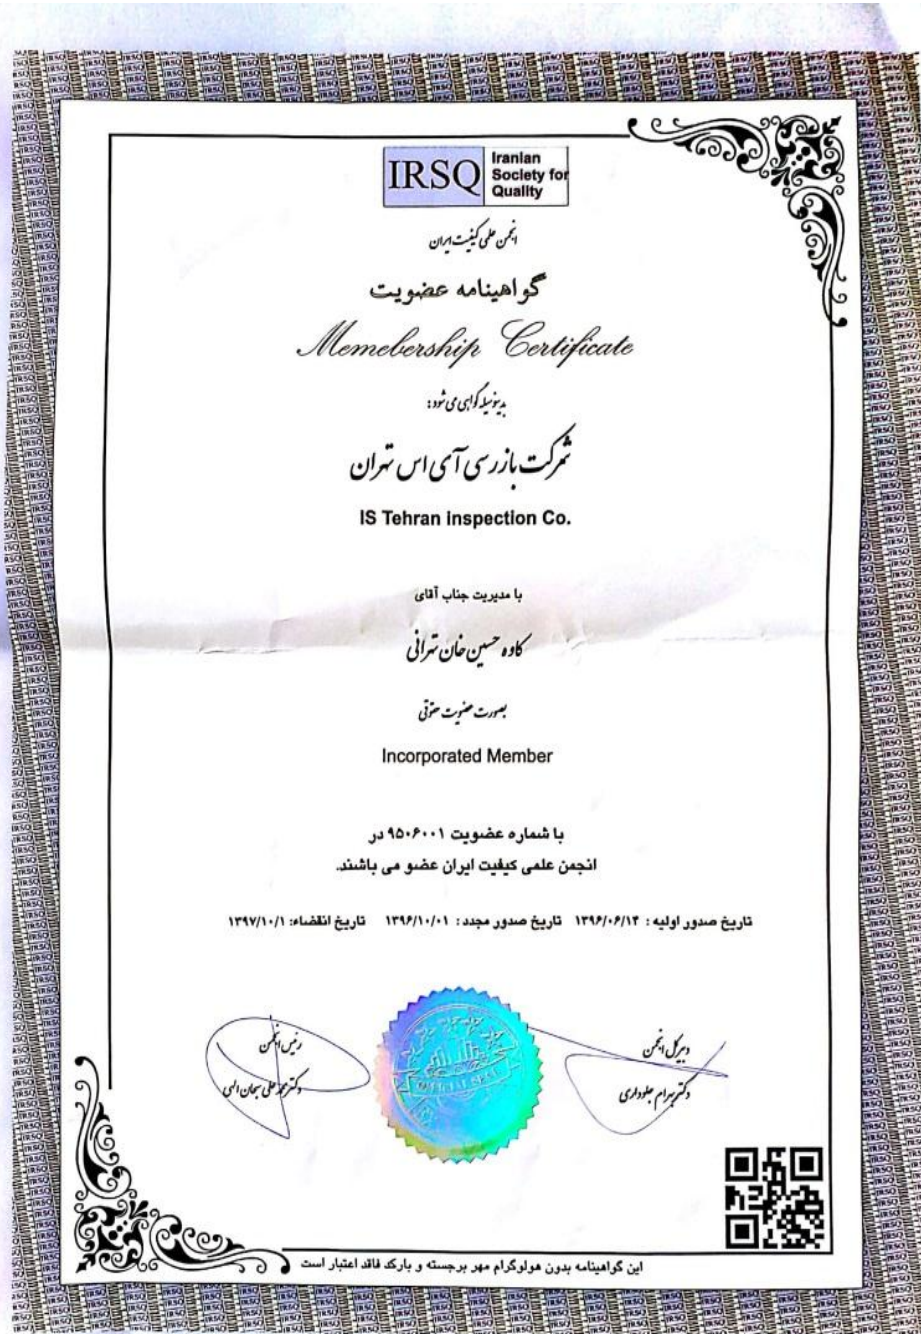 IRSQ
Iranian
Society for
Quality
انجمن علمی کیفیت ایران
گواهینامه عضویت
Memebership Certificate
بدینوسیله گواهی می شود:
شرکت بازرسی آی اس تهران
IS Tehran inspection Co.
با مدیریت جناب آقای
کاوه حسین خان تهرانی
بصورت عضویت حقوقی
Incorporated Member
با شماره عضویت ۹۵۰۶۰۰۱ در
انجمن علمی کیفیت ایران عضو می باشند.
تاریخ صدور اولیه : ۱۳۹۶/۰۶/۱۴ تاریخ صدور مجدد : ۱۳۹۶/۱۰/۰۱ تاریخ انقضاء: ۱۳۹۷/۱۰/۱
دبیرکل انجمن
دکتر بهرام جلوداری
رئیس انجمن
دکتر محمدعلی سبحان الهی
OFFICIAL SEAL
این گواهینامه بدون هولوگرام مهر برجسته و بارکد فاقد اعتبار است